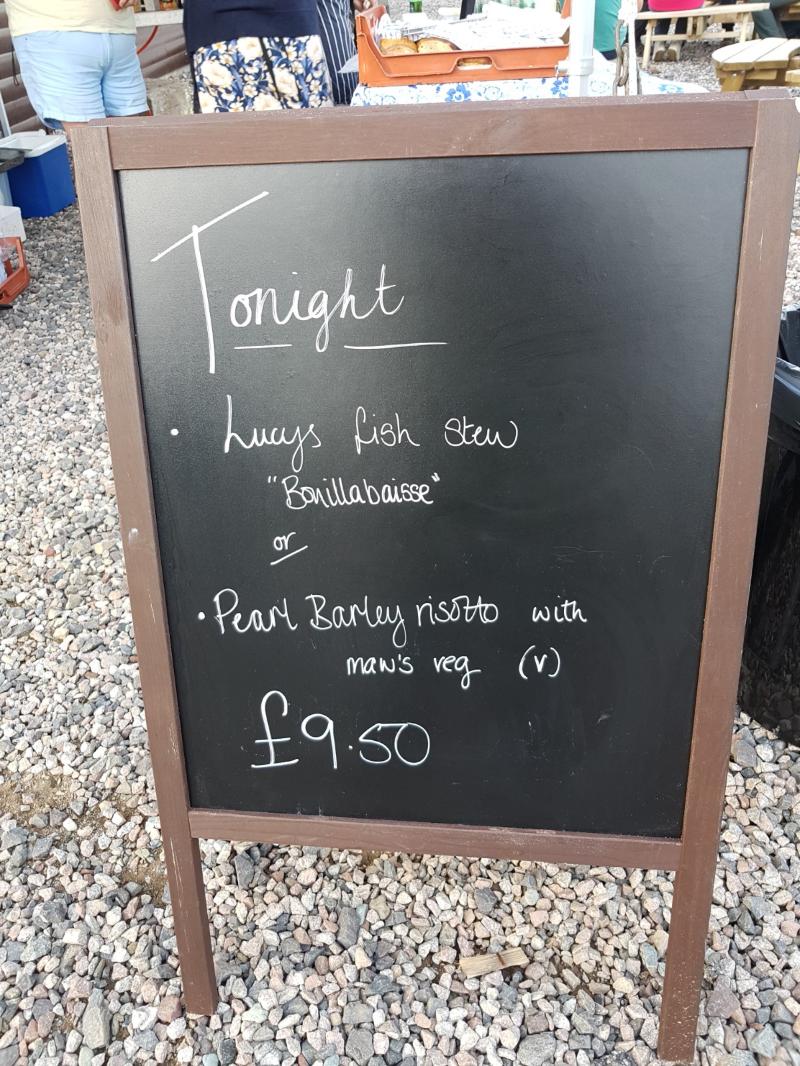 Tonight
• Lucys fish stew
"Bonillabaisse"
or
• Pearl Barley risotto with
maw's veg (v)
£9.50